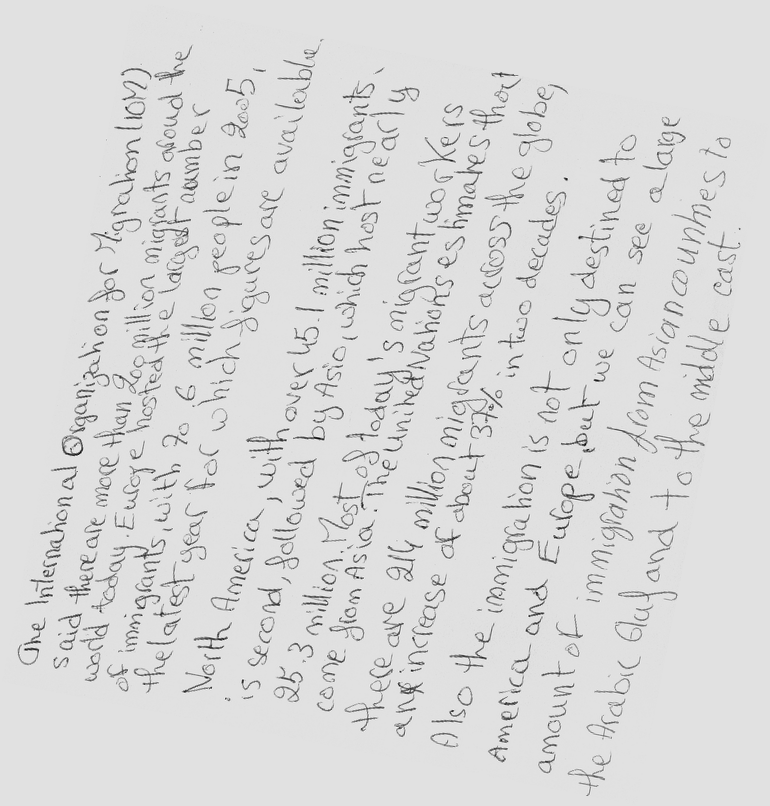 The International Organization for Migration (IOM)
said there are more than 200 million migrants around the
world today. Europe hosted the largest number
of immigrants, with 70.6 million people in 2005,
the latest year for which figures are available.
North America, with over 45.1 million immigrants,
is second, followed by Asia, which host nearly
25.3 million. Most of today's migrant workers
come from Asia. The United Nations estimates that
there are 214 million migrants across the globe,
an increase of about 37% in two decades.
Also the immigration is not only destined to
America and Europe, but we can see a large
amount of immigration from Asian countries to
the Arabic Gluf and to the middle east.